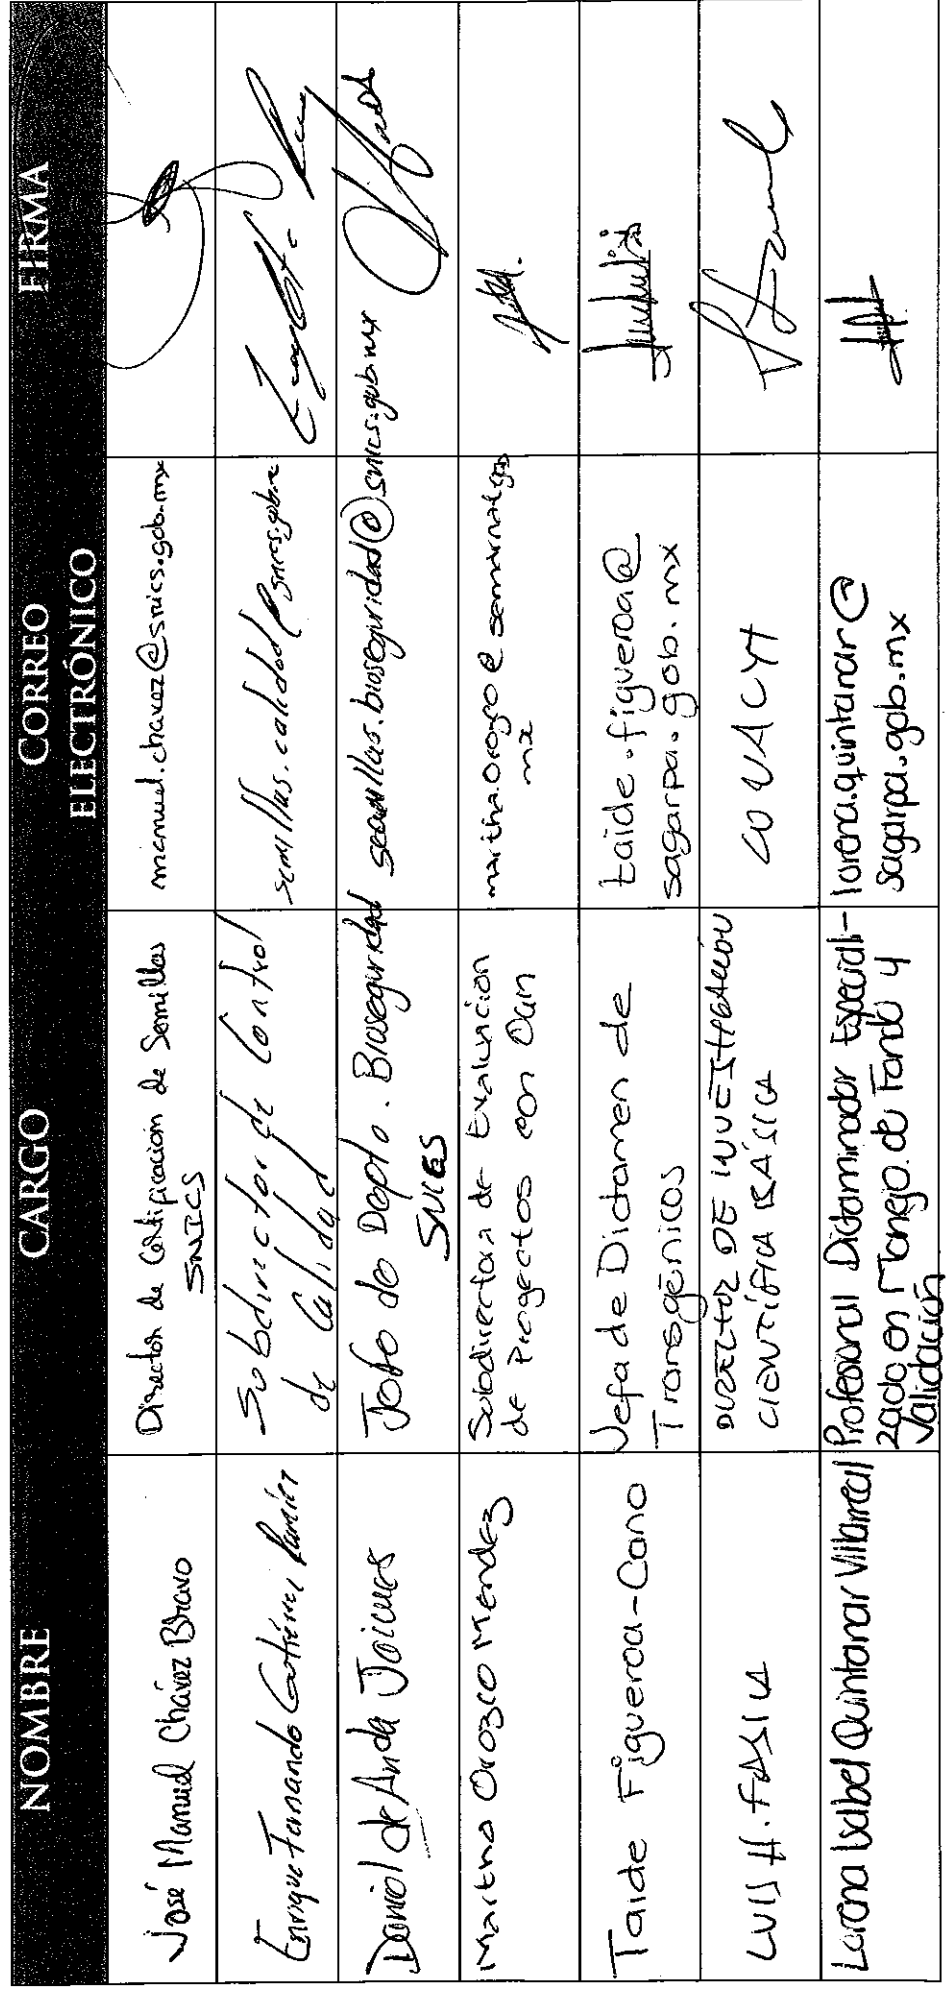 NOMBRE CARGO CORREO ELECTRÓNICO FIRMA
José Manuel Chávez Bravo
Director de Certificación de Semillas
SNICS
manuel.chavez@snics.gob.mx
Enrique Fernando Gutiérrez Ramírez
Subdirector de Control
de Calidad
semillas.calidad@snics.gob.mx
Daniel de Anda
Jefe de Depto. Bioseguridad
SNICS
semillas.bioseguridad@snics.gob.mx
Martha Orozco Mendez
Subdirectora de Evaluación
de Proyectos con
martha.orozco@semarnat.gob
mx
Taide Figueroa-Cano
Jefa de Dictamen de
Transgénicos
taide.figueroa@
sagarpa.gob.mx
LUIS H. FASIA
DIRECTOR DE INVESTIGACIÓN
CIENTÍFICA BÁSICA
CONACYT
Lorena Isabel Quintanar Villarreal
Profesional Dictaminador Especiali-
zado en Manejo de Fondo y
Validación
lorena.quintanar@
sagarpa.gob.mx